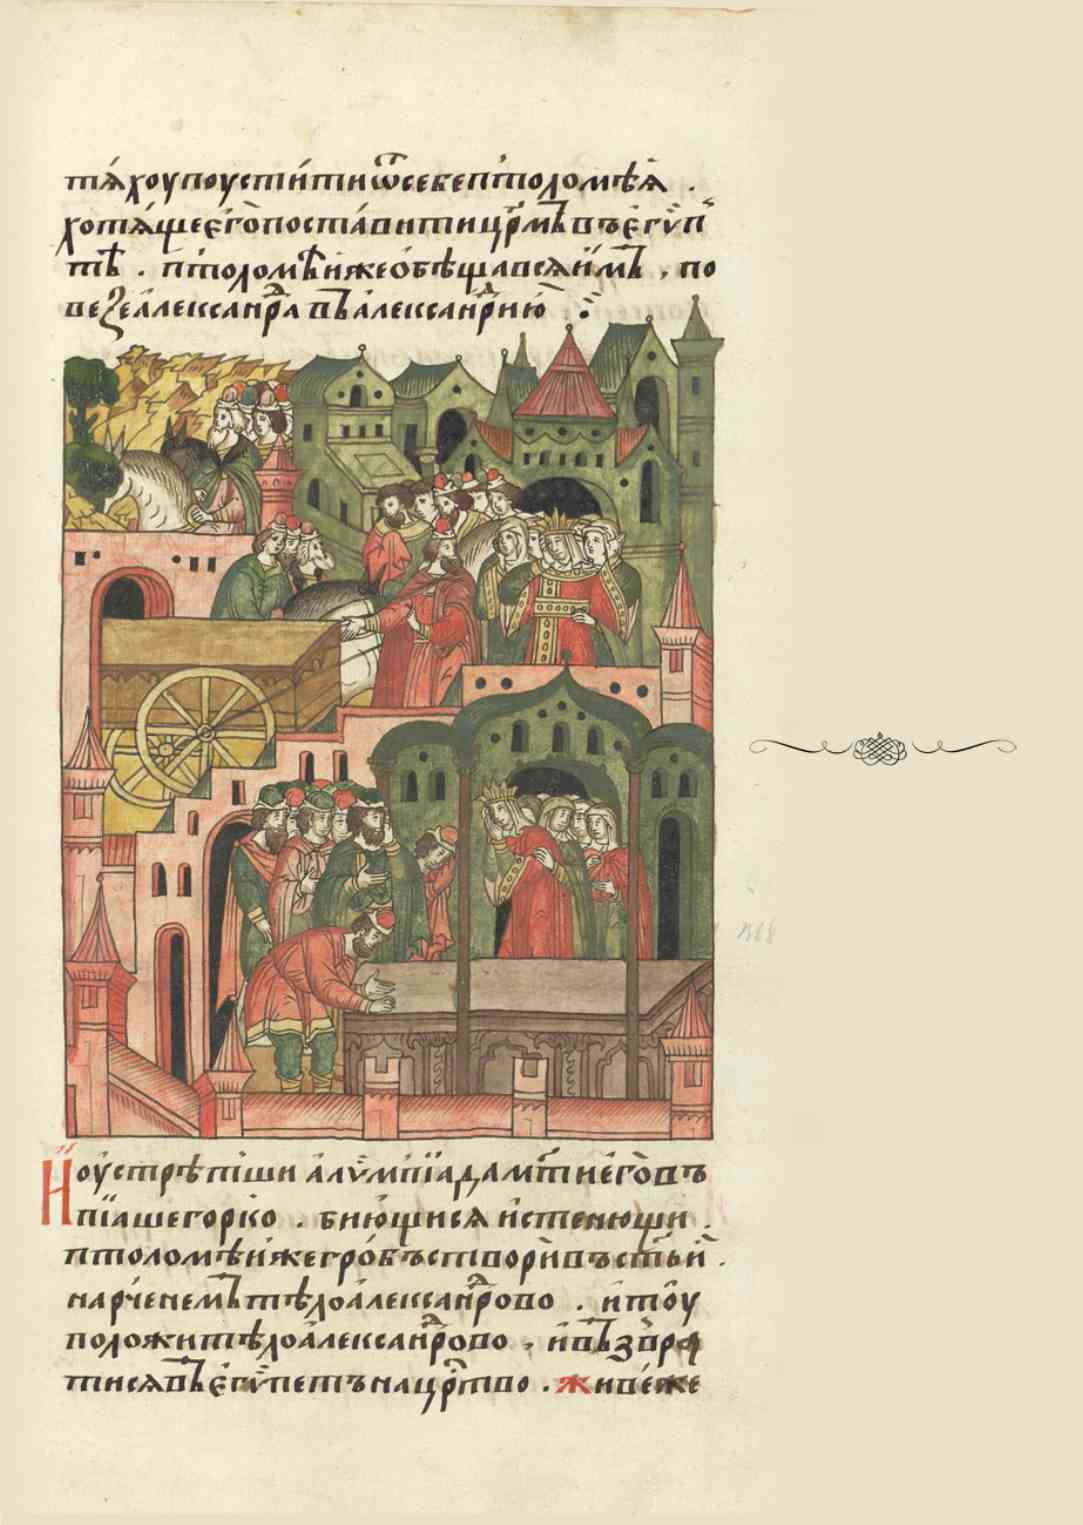 тя́хоу поусти́ти ѿ себе птоломѣ́я .
хотя́ще єго̀ поста́вити цр҃мъ въ єгѵп
тѣ . птоломѣ́й же обѣщався и҆мъ , по
везе а҆леѯанⷣра въ а҆леѯанⷣрию
Ноу стрѣ́пши а҆лѵмпїада мт҃и єго̀ въ
пїаше горко . биющися и҆ стенющи .
птоломѣ́й же гро́бъ створи̂ въ ст҃ѣй .
нарче́немъ тѣло а҆леѯанⷣрово . и҆ тоу̂
положи тѣло а҆леѯанⷣрово , и҆ въ́звра
тися въ єгѵ́петъ на црⷭ҇тво . живе́ же